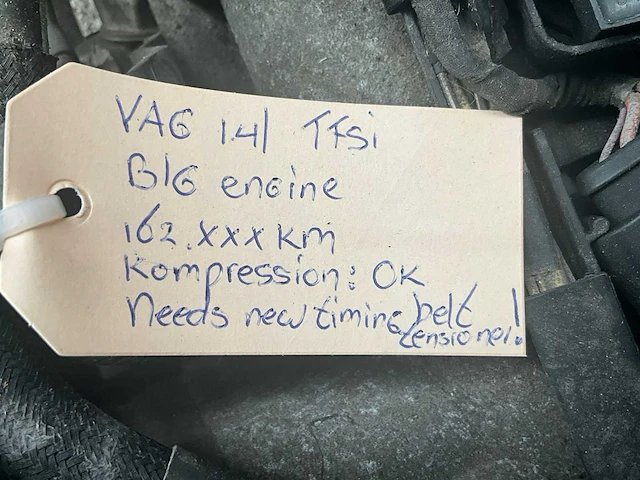 VAG 1.4l TFSi
BIG engine
162.xxx km
Kompression: OK
Needs new timing belt
tensioner!